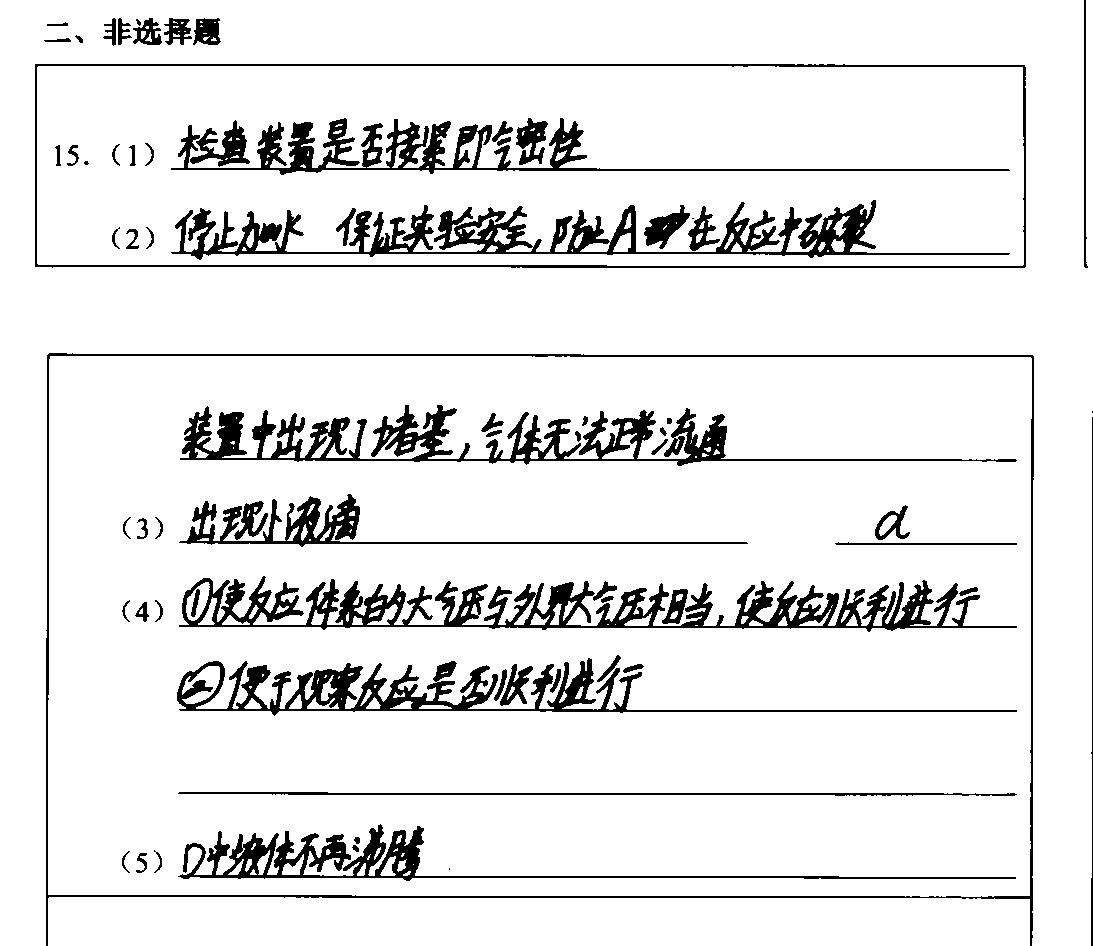 二、非选择题
15.（1）检查装置是否接紧即气密性
（2）停止加水 保证实验安全，防止A 在反应中破裂
装置中出现了堵塞，气体无法正常流通
（3）出现小液滴 d
（4）①使反应体系的大气压与外界大气压相当，使反应顺利进行
②便于观察反应是否顺利进行
（5）D中液体不再沸腾